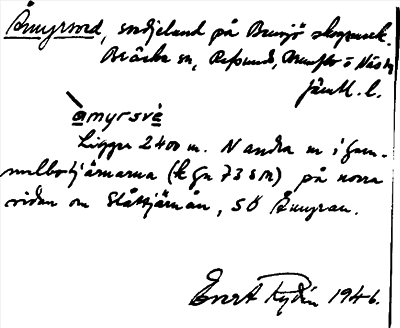 Åmyrsved, svedjeland på Bensjö skogsmark.
Bräcke sn, Refsunds, Brunflo o Näs tg
Jämtl. l.
åmyrsvé
Ligger 2400 m. N andra m i Gam-
mulbotjärnarna (k fn 73 s R) på norra
sidan om Slåttjärnån, SÖ Åmyran.
Evert Rydin 1946.